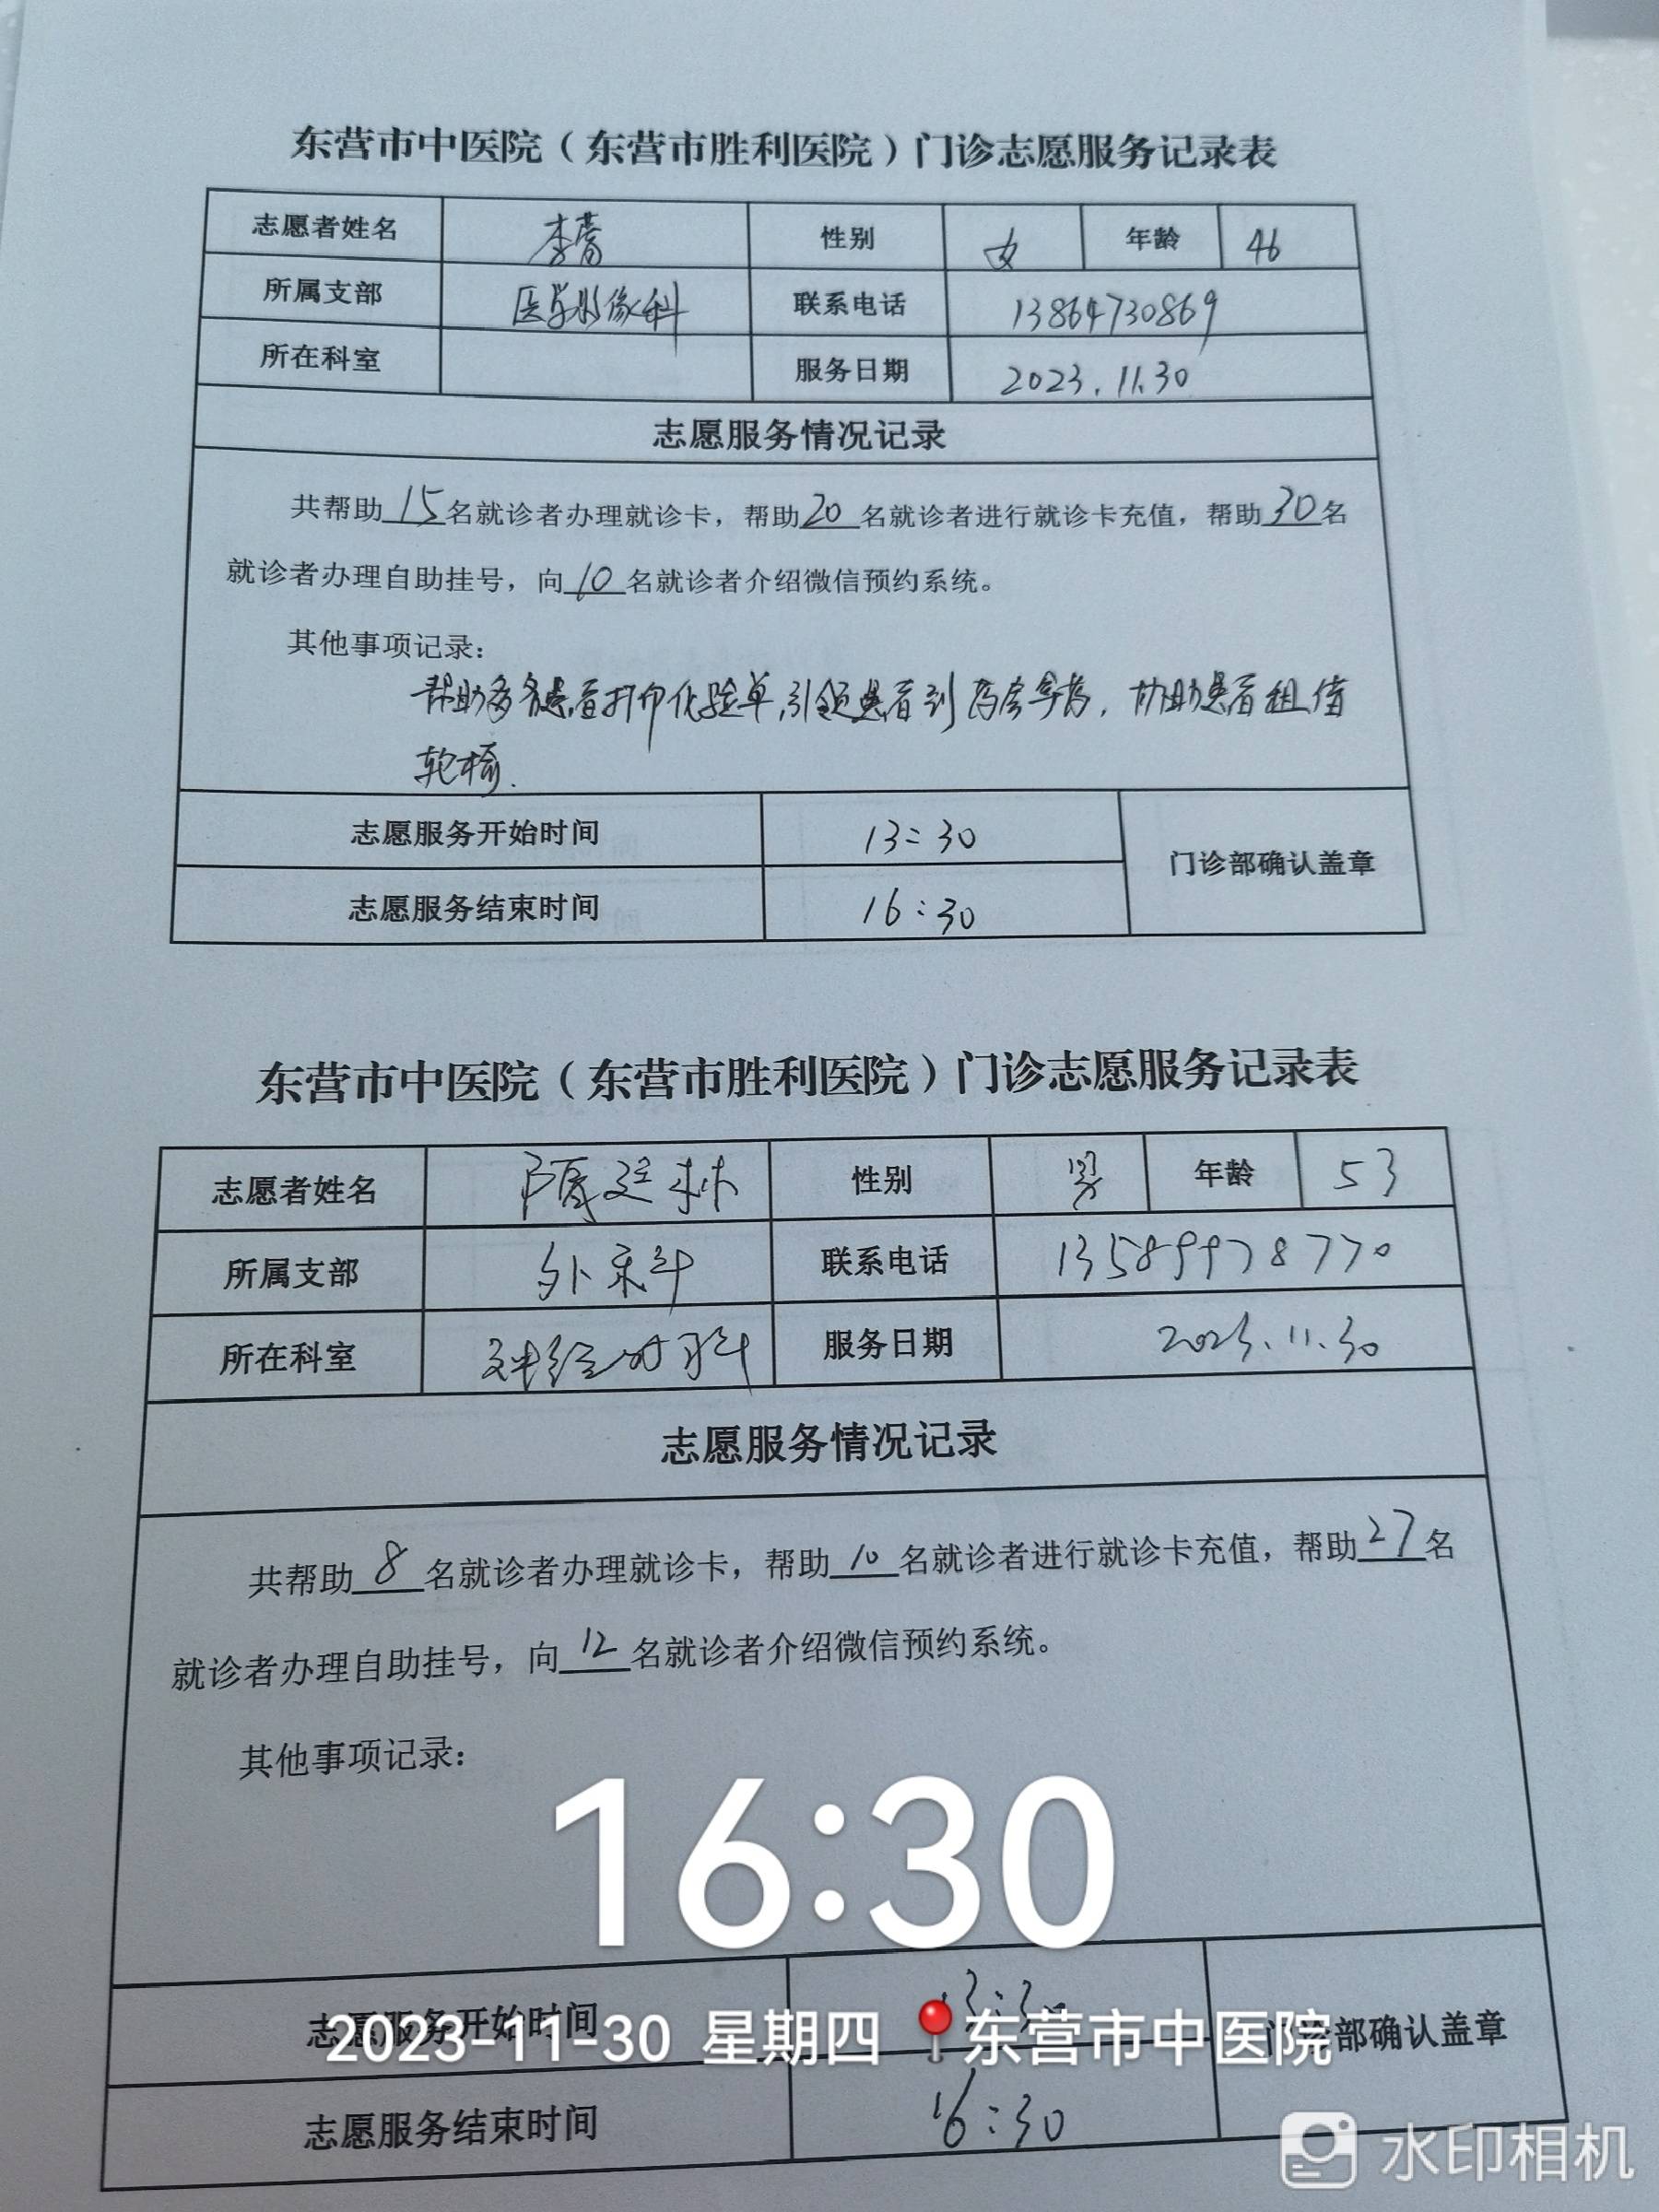 东营市中医院（东营市胜利医院）门诊志愿服务记录表
志愿者姓名 李蕾 性别 女 年龄 46
所属支部 医学影像科 联系电话 13864730869
所在科室 服务日期 2023.11.30
志愿服务情况记录
共帮助15名就诊者办理就诊卡，帮助20名就诊者进行就诊卡充值，帮助30名
就诊者办理自助挂号，向10名就诊者介绍微信预约系统。
其他事项记录：
帮助多名患者打印化验单,引领患者到药房拿药，协助患者租借
轮椅.
志愿服务开始时间 13:30 门诊部确认盖章
志愿服务结束时间 16:30
东营市中医院（东营市胜利医院）门诊志愿服务记录表
志愿者姓名 隋建林 性别 男 年龄 53
所属支部 外系科 联系电话 13589978770
所在科室 神经外科 服务日期 2023.11.30
志愿服务情况记录
共帮助8名就诊者办理就诊卡，帮助10名就诊者进行就诊卡充值，帮助27名
就诊者办理自助挂号，向12名就诊者介绍微信预约系统。
其他事项记录：
16:30
志愿服务开始时间 13:30 门诊部确认盖章
2023-11-30 星期四 东营市中医院
志愿服务结束时间 16:30
水印相机